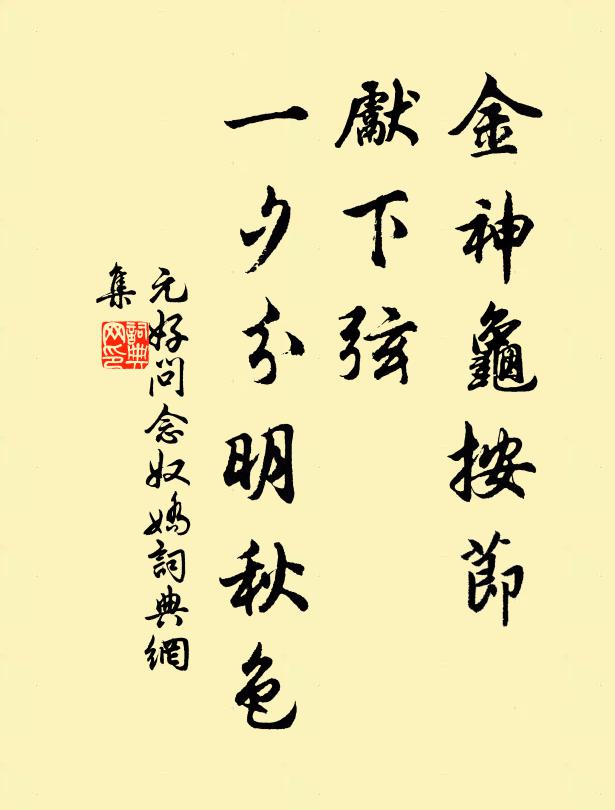 金神龜按節
獻下弦
一夕分明秋色
元好問念奴嬌詞典網
集
詞典網印